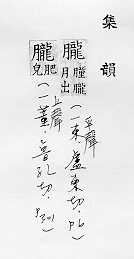 集韻
朧朣朧月出(一東,盧東切,P6)
平聲
朧肥皃(一董,魯孔切,P301)
上聲